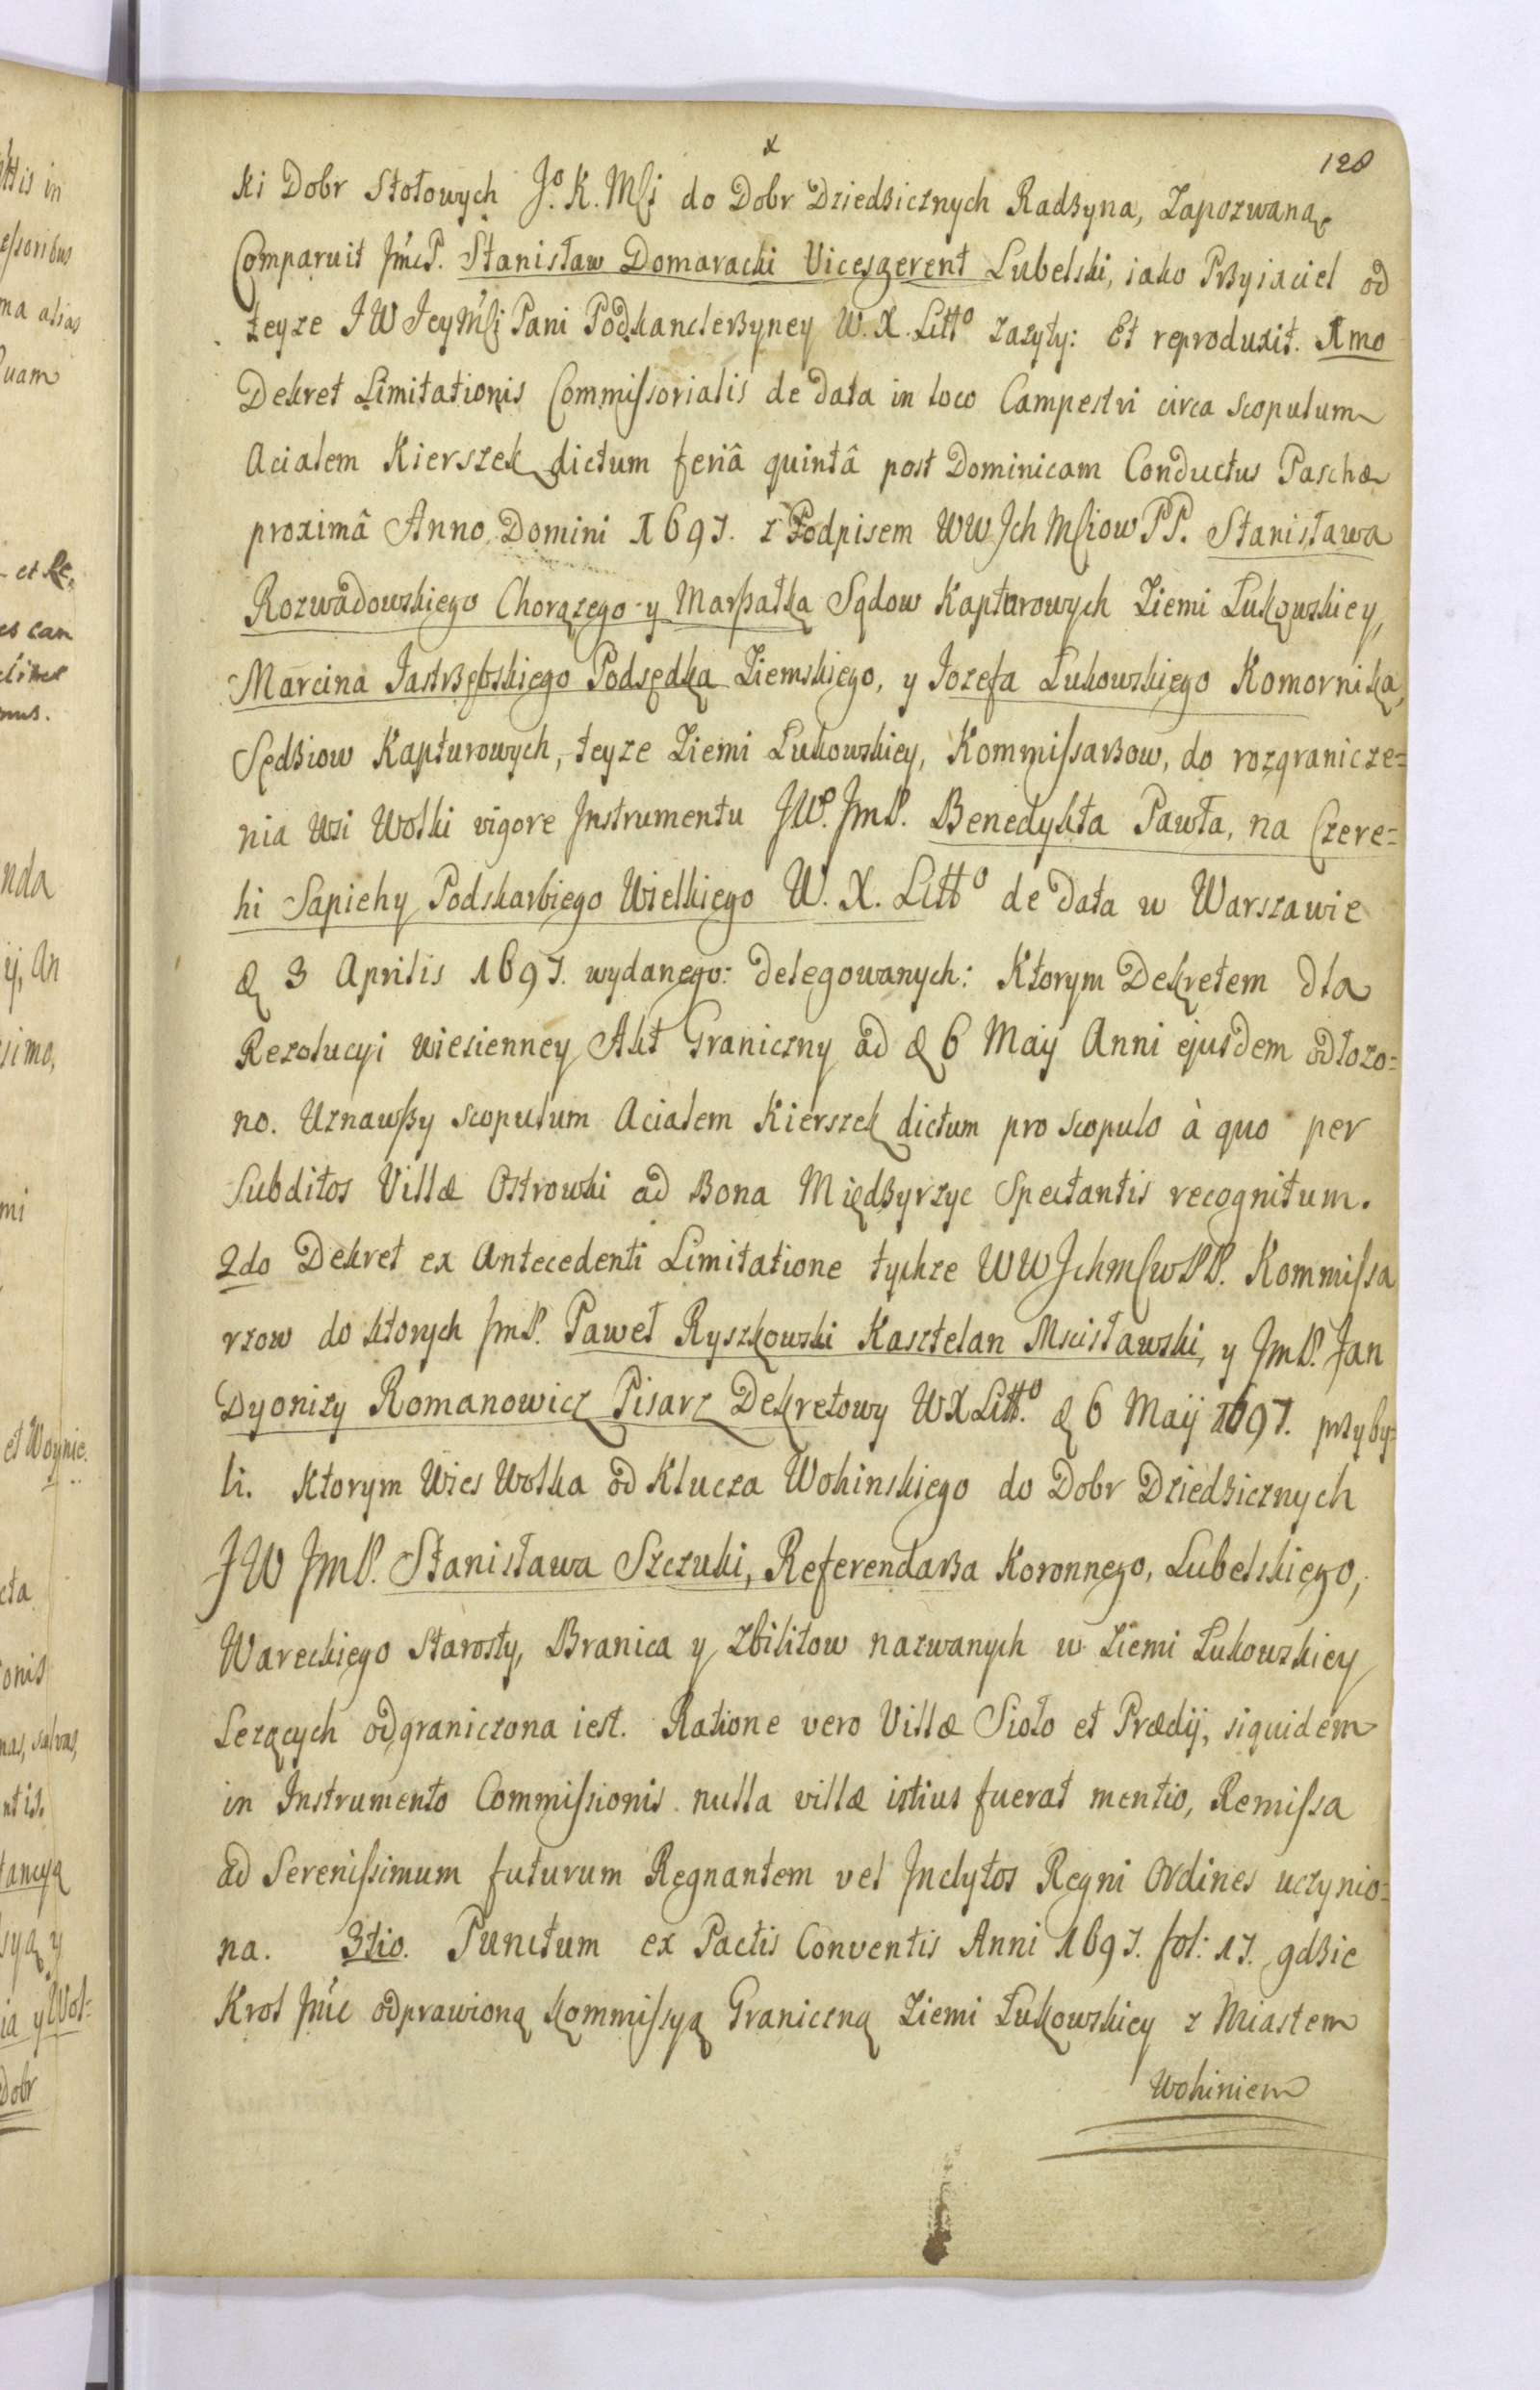 128
x
ki Dobr Stołowych Jº. K. Mſi do Dobr Dziedzicznych Radzyna, Zapozwaną
Comparuit JmćP. Stanisław Domaracki Vicesgerent Lubelski, iako Przyiaciel od
teyze JW JeyMſi Pani Podkancleszyney W. X. Littº zazyty: Et reproduxit. 1mo
Dekret Limitationis Commiſsorialis de data in loco Campestri circa Scopulum
Acialem Kierszek dictum feriâ quintâ post Dominicam Conductus Paschæ
proximâ Anno Domini 1697. z Podpisem WWJch Mſiow PP. Stanisława
Rozwadowskiego Chorązego y Marszałka Sądow Kapturowych Ziemi Łukowskiey,
Marcina Jastrzębskiego Podsędka Ziemskiego, y Jozefa Łukowskiego Komornika,
Sędziow Kapturowych, teyze Ziemi Łukowskiey, Kommiſsarzow, do rozgranicze=
nia Wsi Wolki vigore Jnstrumentu JWº. JmP. Benedykta Pawła, na Czere=
hi Sapiehy Podskarbiego Wielkiego W. X. Littº de data w Warszawie
d 3 Aprilis 1697. wydanego: delegowanych: Ktorym Dekretem dla
Rezolucyi wiesienney Akt Graniczny ad d 6 Maij Anni ejusdem odłozo=
no. Uznawszy scopulum Acialem Kierszek dictum pro scopulo à quo per
Subditos Villæ Ostrowki ad Bona Międzyrzyc Spectantis recognitum.
2do Dekret ex Antecedenti Limitatione tychze WWJchmſwPP. Kommiſsa
rzow do ktorych JmP. Paweł Ryszkowski Kasztelan Mscisławski, y JmP. Jan
Dyonizy Romanowicz Pisarz Dekretowy WXLittº. d 6 Maij 1697. przyby=
li. Ktorym Wies Wolka od Klucza Wohinskiego do Dobr Dziedzicznych
JW JmP. Stanisława Szczuki, Referendarza Koronnego, Lubelskiego,
Wareckiego Starosty, Branica y Zbilitow nazwanych w Ziemi Łukowskiey
Lezących odgraniczona iest. Ratione vero Villæ Sioło et Prædij, siquidem
in Instrumento Commiſsionis nulla villæ istius fuerat mentio, Remiſsa
ad Sereniſsimum futurum Regnantem vel Jnclytos Regni Ordines uczynio=
na. 3tio. Punctum ex Pactis Conventis Anni 1697. fol: 17. gdzie
Krol Jmć odprawioną Kommiſsyą Graniczną Ziemi Łukowskiey z Miastem
Wohiniem